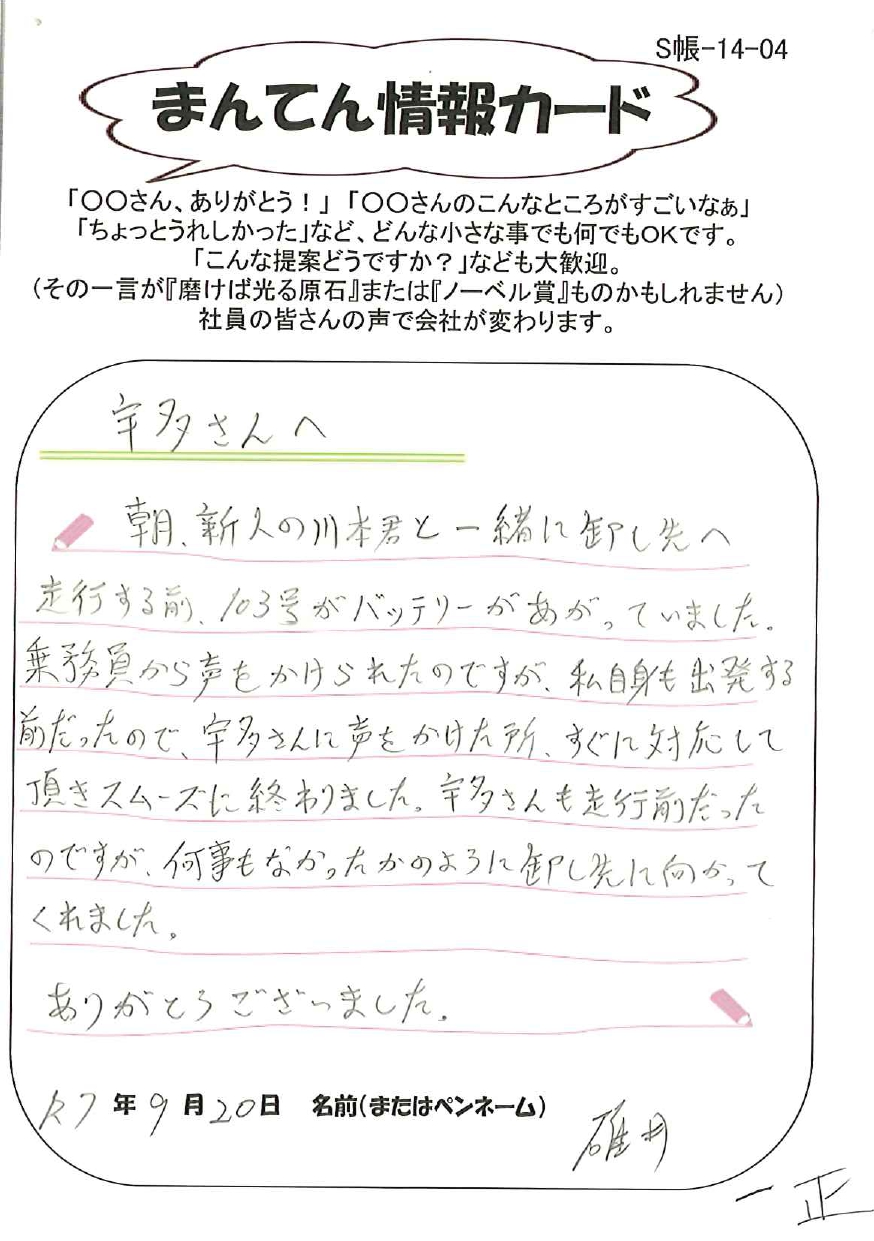 S帳-14-04
まんてん情報カード
「〇〇さん、ありがとう！」「〇〇さんのこんなところがすごいなぁ」
「ちょっとうれしかった」など、どんな小さな事でも何でもOKです。
「こんな提案どうですか？」なども大歓迎。
（その一言が『磨けば光る原石』または『ノーベル賞』ものかもしれません）
社員の皆さんの声で会社が変わります。
宇多さんへ
朝、新人の川本君と一緒に卸し先へ
走行する前、103号がバッテリーがあがっていました。
乗務員から声をかけられたのですが、私自身も出発する
前だったので、宇多さんに声をかけた所、すぐに対応して
頂きスムーズに終わりました。宇多さんも走行前だった
のですが、何事もなかったかのように卸し先に向かって
くれました。
ありがとうございました。
R7年9月20日 名前（またはペンネーム）
碓井
一正